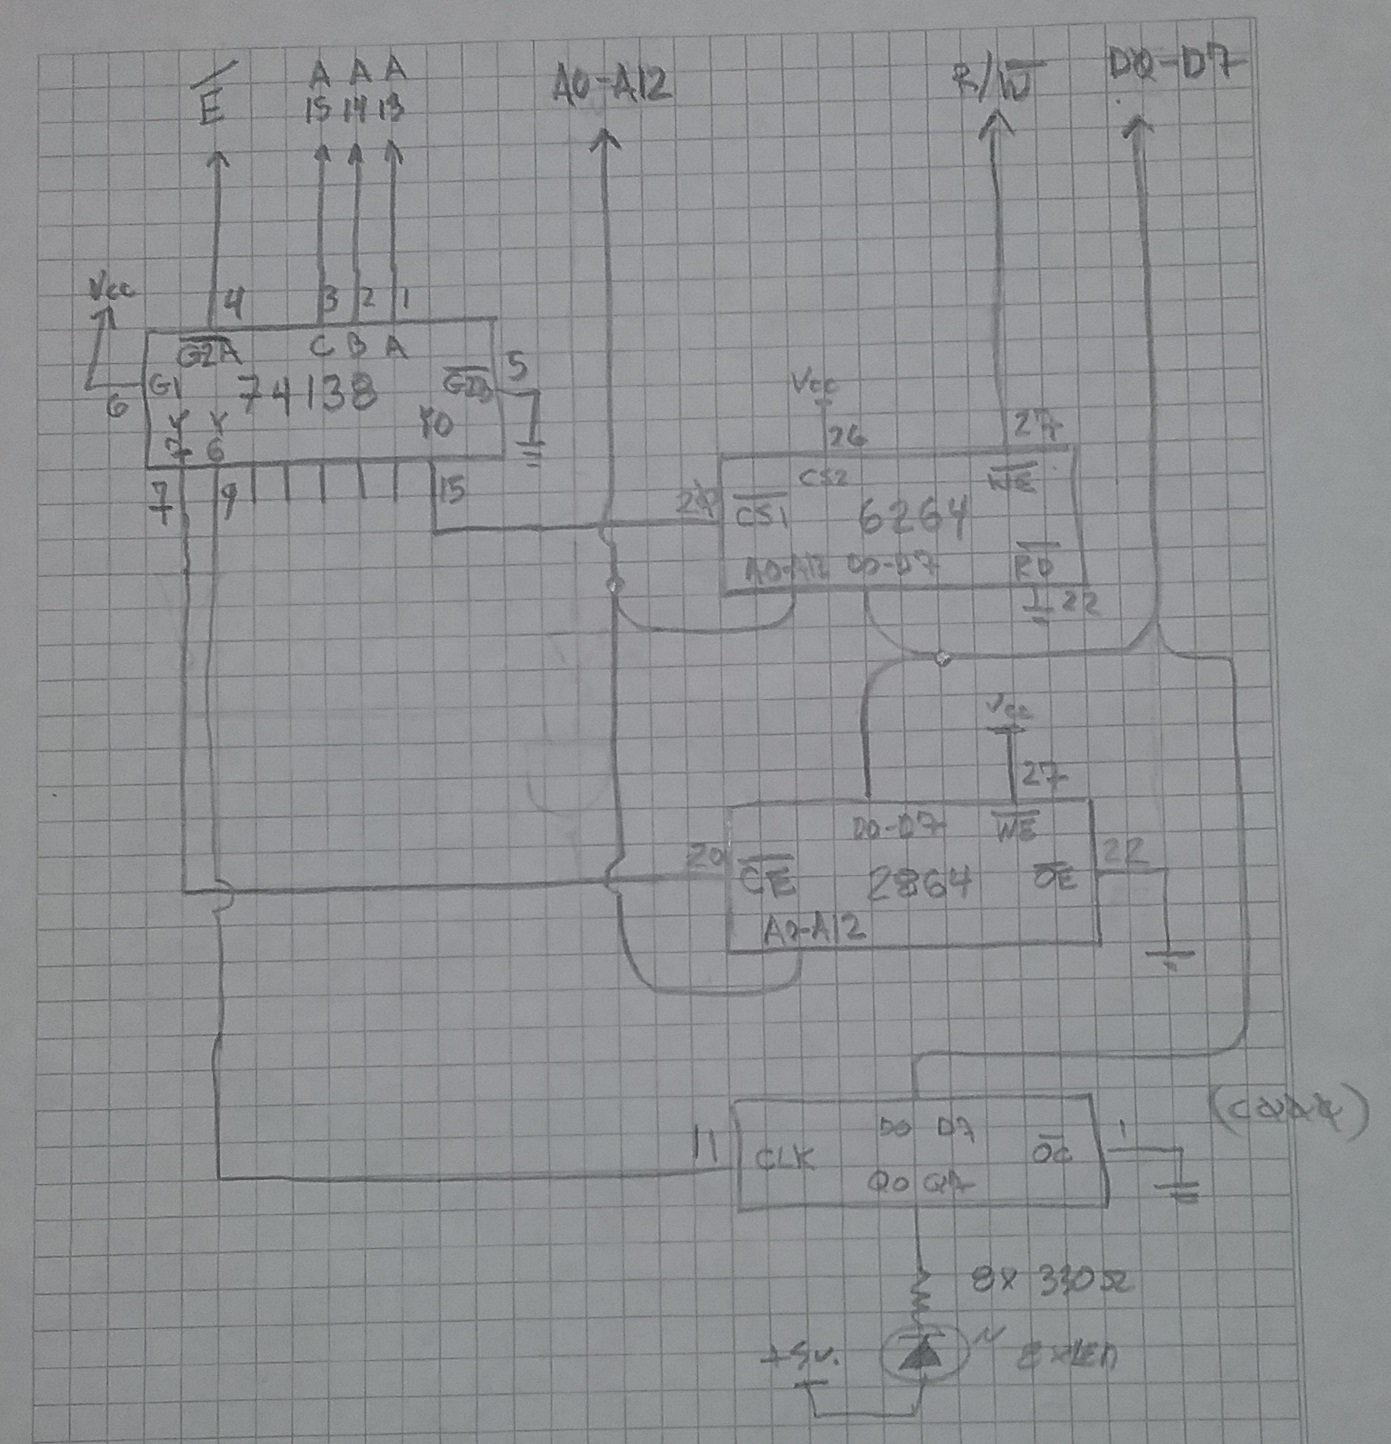 E̅ A A A A0-A12 R/W̅ D0-D7
15 14 13
Vcc
4 3 2 1
G2A̅ C B A
6 G1 74138 G2B̅ 5
Y Y Y0
7 6
7 9 15
Vcc
26 27
CS2 W̅E̅
C̅S̅1̅ 6264
A0-A12 D0-D7 R̅D̅
22
Vcc
27
D0-D7 W̅E̅
20 C̅E̅ 2864 O̅E̅ 22
A0-A12
D0 D7 1
11 CLK O̅C̅
Q0 Q7
8x 330Ω
+5v. 8xLED